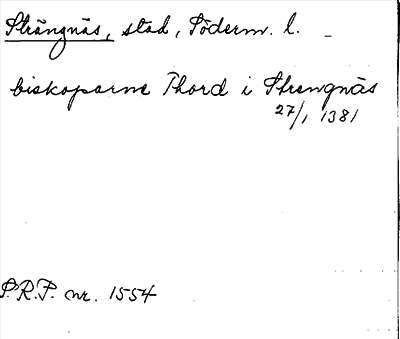 Strängnäs, stad, Söderm. l.
biskoparne Thord i Strengnäs
27/1 1381
S.R.P. nr. 1554